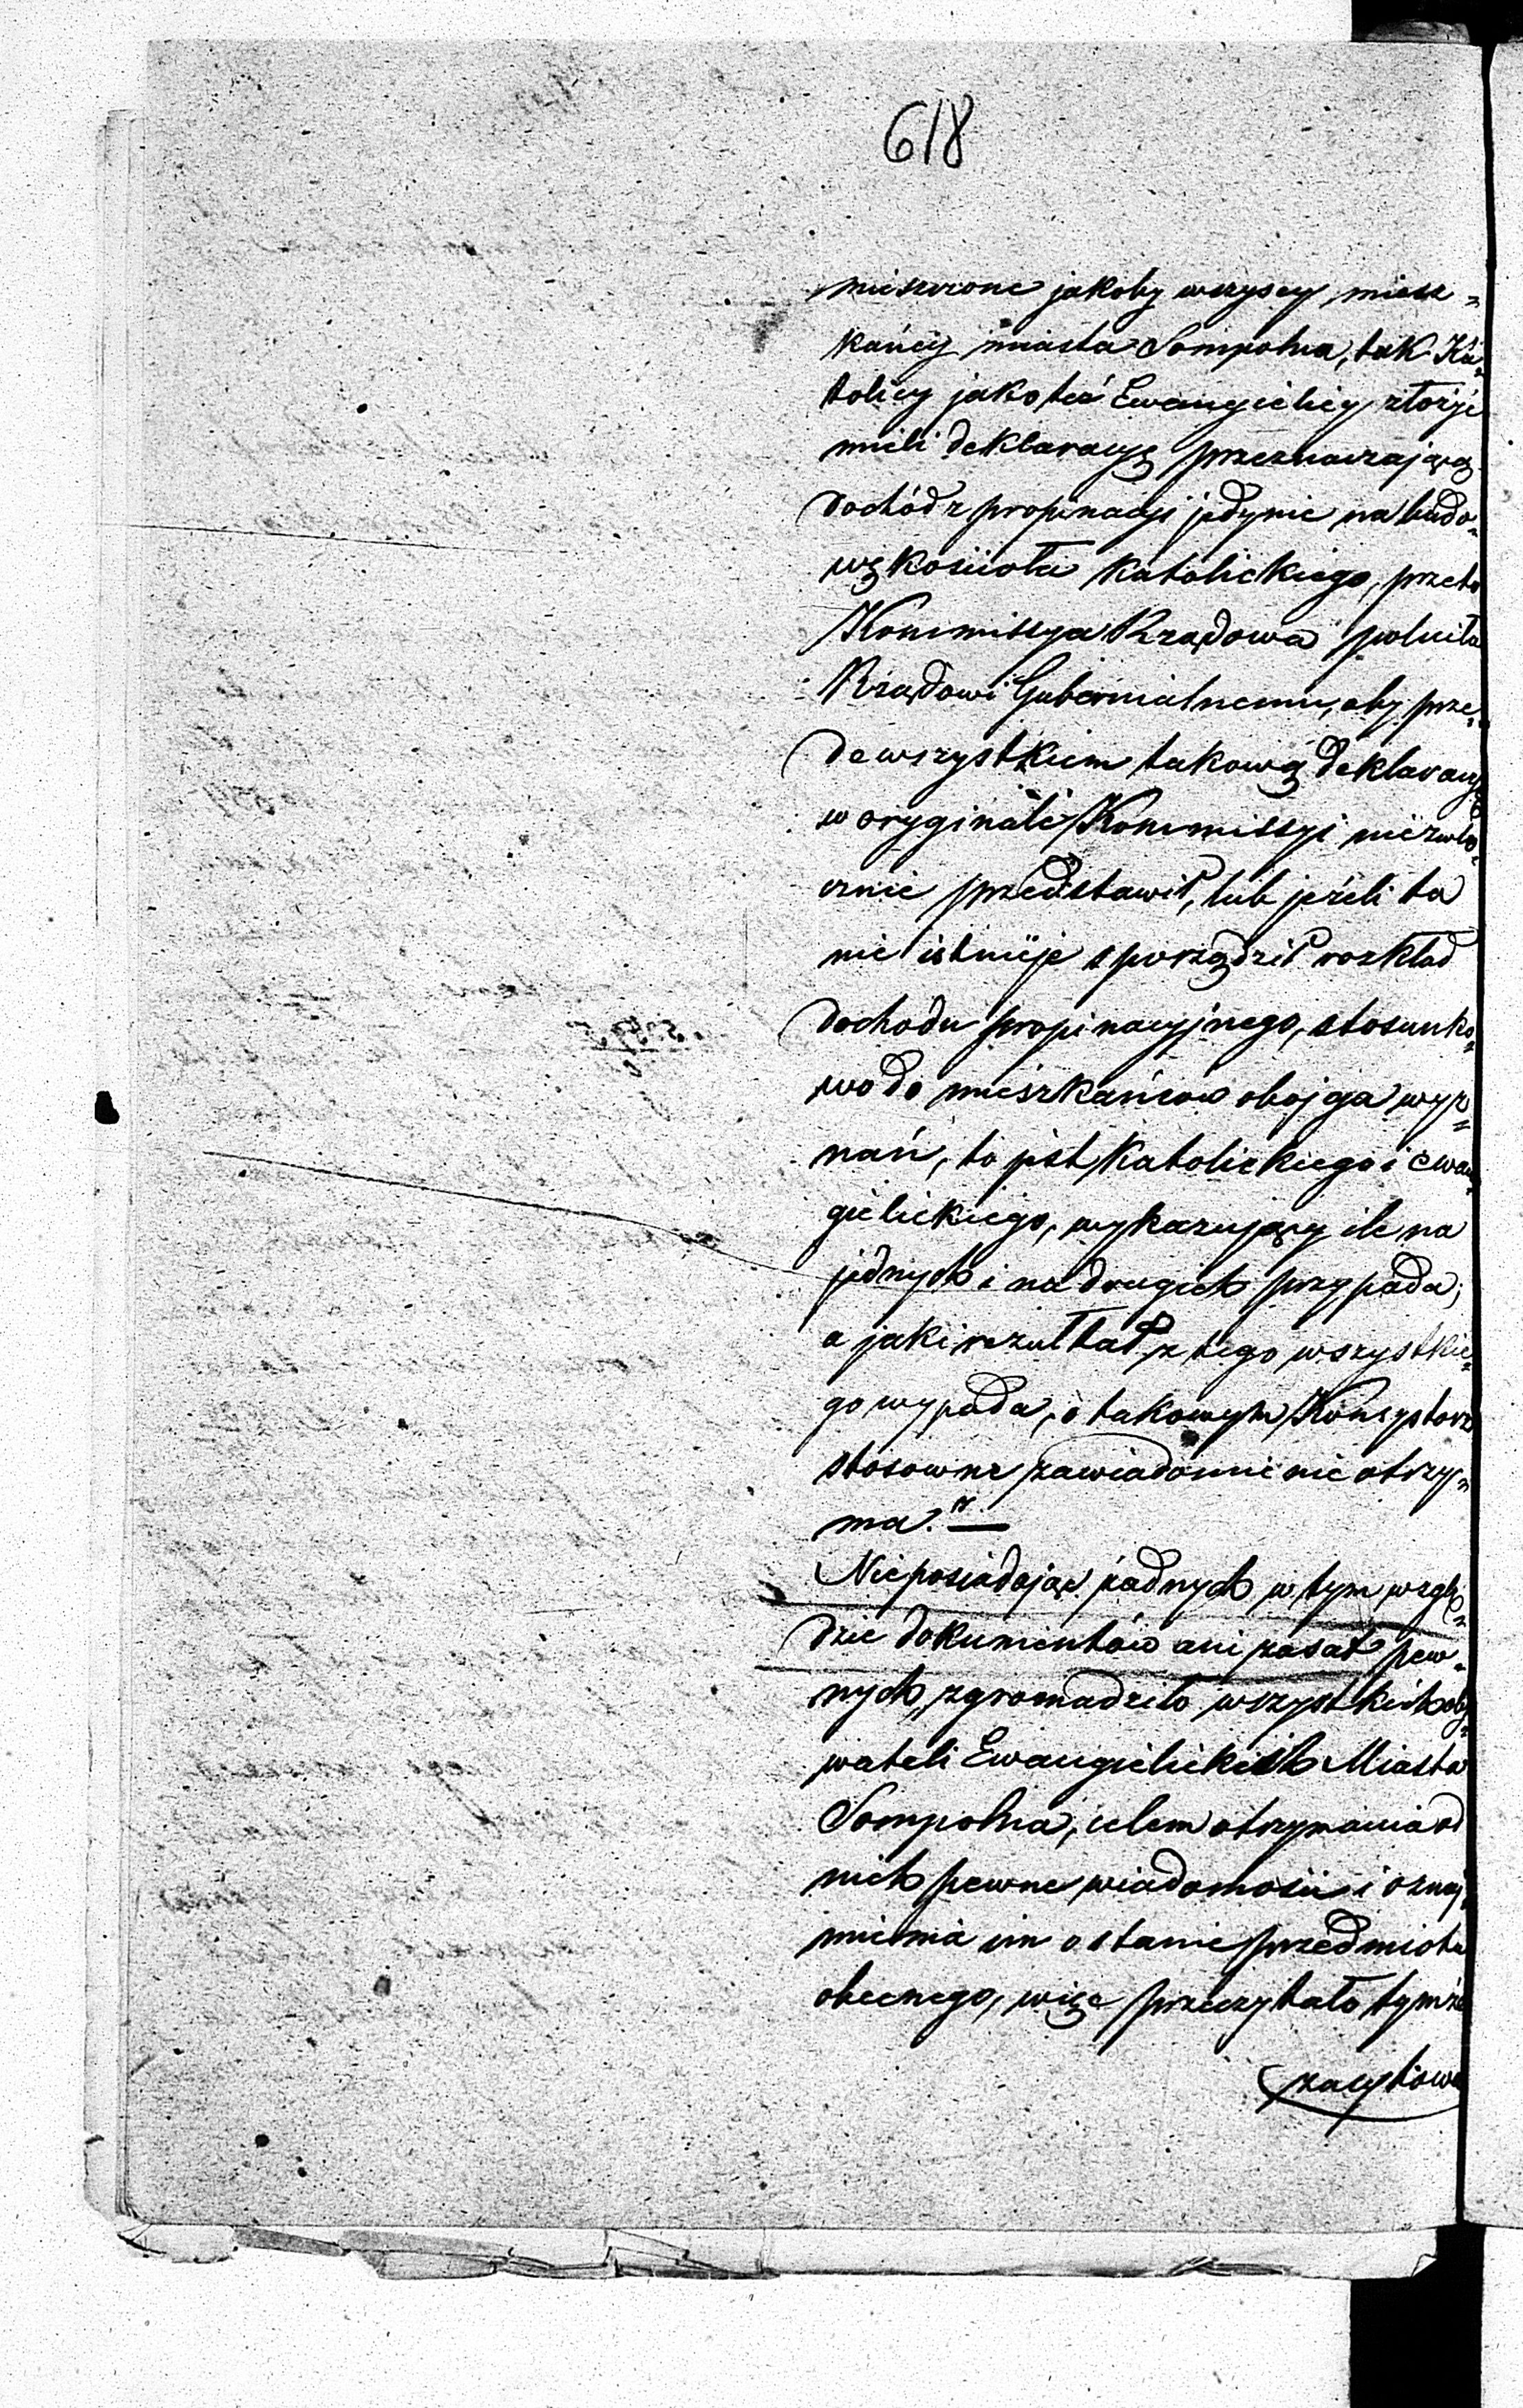 618
mieszczone jakoby wszyscy miesz=
kańcy miasta Sompolna, tak Ka=
tolicy jako też Ewangielicy złożyć
mieli deklaracyę przeznaczającą
dochód z propinacyi jedynie na budo=
wę kościoła katolickiego, przeto
Kommissya Rządowa poleciła
Rządowi Gubernialnemu, aby prze=
dewszystkiem takową deklaracyę
w oryginale Kommissyi niezwło=
cznie przedstawił, lub jeżeli ta
nie istnieje sporządził rozkład
dochodu propinacyjnego, stosunko=
wo do mieszkańców obojga wyz=
nań, to jest Katolickiego i ewan=
gielickiego, wykazujący ile na
jednych i na drugich przypada;
a jaki rezultat z tego wszystkie=
go wypada, o takowym Konsystorz
stosowne zawiadomienie otrzy=
ma." —
Nieposiadając żadnych w tym wzglę=
dzie dokumentów ani zasad pew=
nych, zgromadziło wszystkich oby=
wateli Ewangielickich Miasta
Sompolna, celem otrzymania od
nich pewne wiadomości i oznaj=
mienia im o stanie przedmiotu
obecnego, więc przeczytało tymże
zacytowa